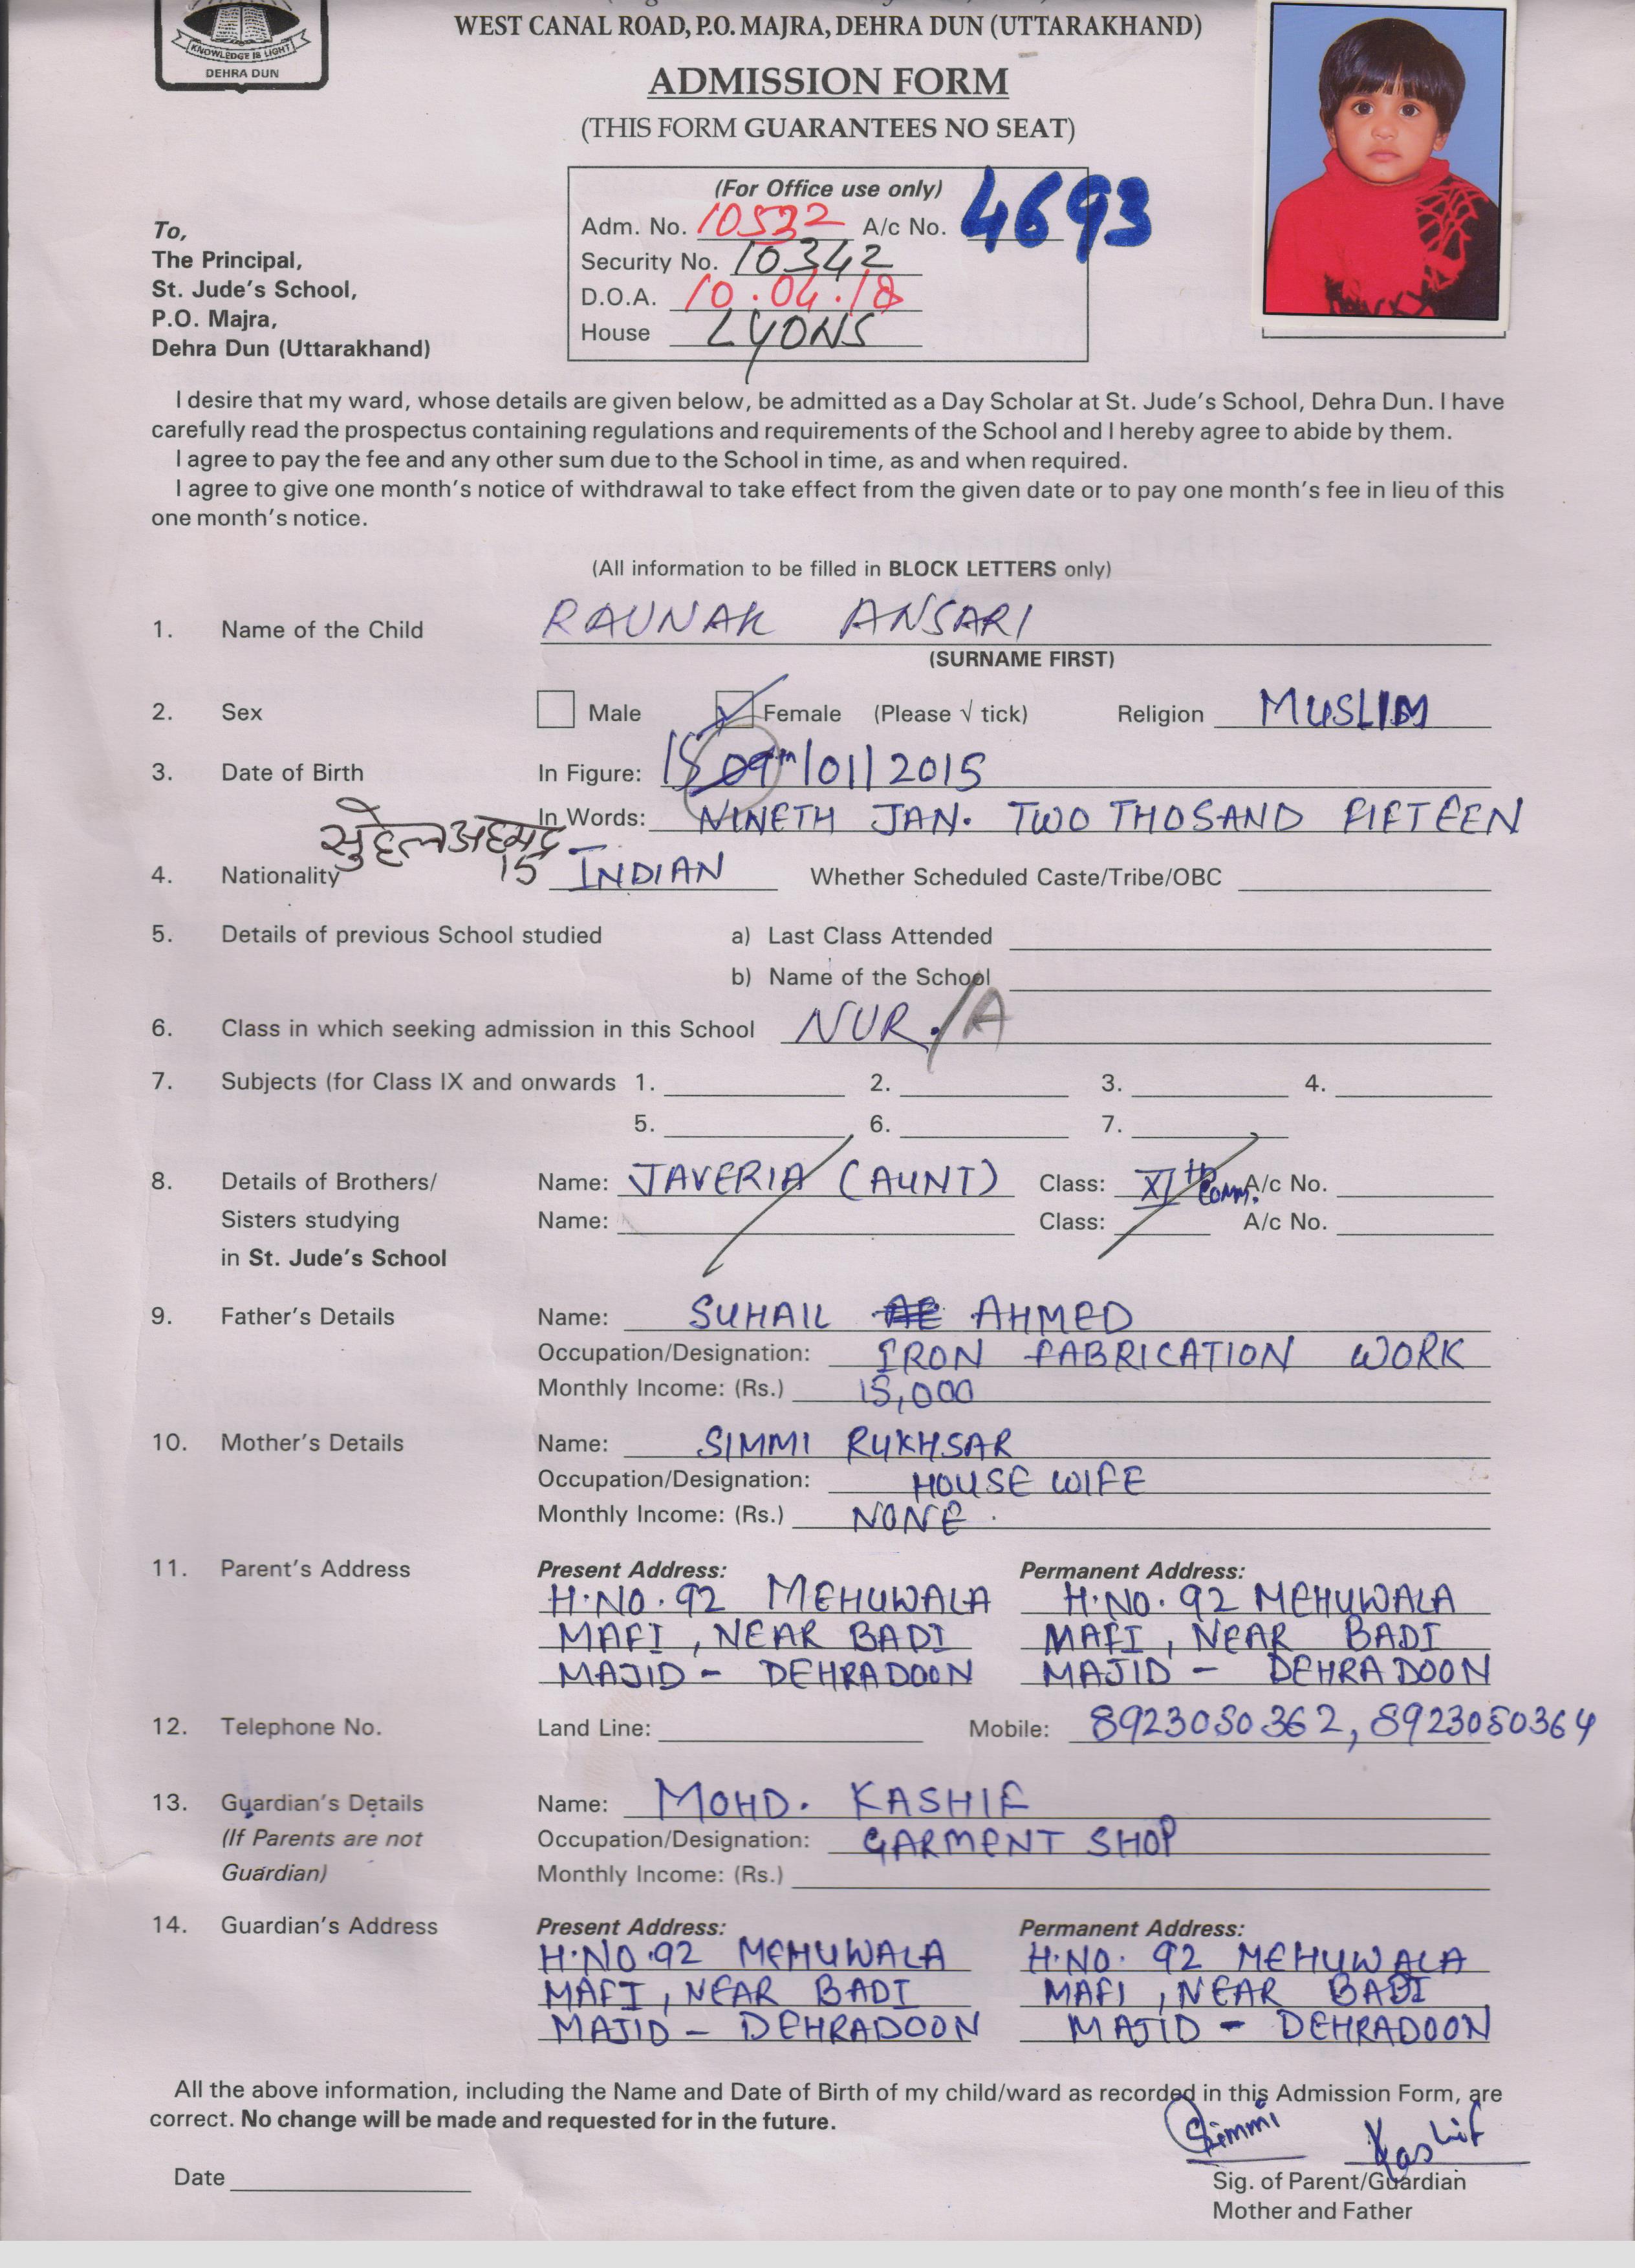 KNOWLEDGE IS LIGHT
DEHRA DUN
WEST CANAL ROAD, P.O. MAJRA, DEHRA DUN (UTTARAKHAND)
ADMISSION FORM
(THIS FORM GUARANTEES NO SEAT)
(For Office use only)
Adm. No. 10532 A/c No. 4693
Security No. 10342
D.O.A. 10.04.18
House LYONS
To,
The Principal,
St. Jude's School,
P.O. Majra,
Dehra Dun (Uttarakhand)
I desire that my ward, whose details are given below, be admitted as a Day Scholar at St. Jude's School, Dehra Dun. I have
carefully read the prospectus containing regulations and requirements of the School and I hereby agree to abide by them.
I agree to pay the fee and any other sum due to the School in time, as and when required.
I agree to give one month's notice of withdrawal to take effect from the given date or to pay one month's fee in lieu of this
one month's notice.
(All information to be filled in BLOCK LETTERS only)
1. Name of the Child RAUNAK ANSARI
(SURNAME FIRST)
2. Sex Male Female (Please √ tick) Religion MUSLIM
3. Date of Birth In Figure: 15 09th/01/2015
In Words: NINETH JAN. TWO THOSAND FIFTEEN
सुहेल अहमद
15
4. Nationality INDIAN Whether Scheduled Caste/Tribe/OBC
5. Details of previous School studied a) Last Class Attended
b) Name of the School
6. Class in which seeking admission in this School NUR./A
7. Subjects (for Class IX and onwards 1. 2. 3. 4.
5. 6. 7.
8. Details of Brothers/ Name: JAVERIA (AUNT) Class: XIth Comm. A/c No.
Sisters studying Name: Class: A/c No.
in St. Jude's School
9. Father's Details Name: SUHAIL AHMED
Occupation/Designation: IRON FABRICATION WORK
Monthly Income: (Rs.) 15,000
10. Mother's Details Name: SIMMI RUKHSAR
Occupation/Designation: HOUSE WIFE
Monthly Income: (Rs.) NONE
11. Parent's Address Present Address: Permanent Address:
H.NO.92 MEHUWALA H.NO.92 MEHUWALA
MAFI, NEAR BADI MAFI, NEAR BADI
MAJID - DEHRADOON MAJID - DEHRADOON
12. Telephone No. Land Line: Mobile: 8923050362, 8923050364
13. Guardian's Details Name: MOHD. KASHIF
(If Parents are not Occupation/Designation: GARMENT SHOP
Guardian) Monthly Income: (Rs.)
14. Guardian's Address Present Address: Permanent Address:
H.NO.92 MEHUWALA H.NO. 92 MEHUWALA
MAFI, NEAR BADI MAFI, NEAR BADI
MAJID - DEHRADOON MAJID - DEHRADOON
All the above information, including the Name and Date of Birth of my child/ward as recorded in this Admission Form, are
correct. No change will be made and requested for in the future.
Simmi Kashif
Date Sig. of Parent/Guardian
Mother and Father